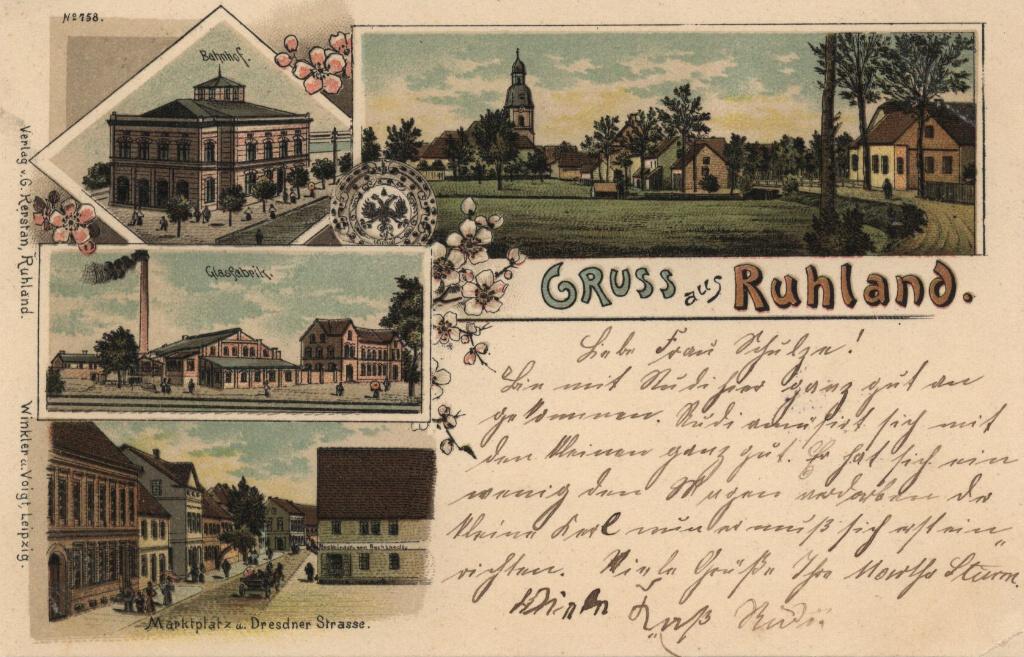 No 758.
Bahnhof.
Verlag v. G. Kerstan, Ruhland.
Glasfabrik.
Winkler u. Voigt, Leipzig.
Marktplatz u. Dresdner Strasse.
GRUSS aus Ruhland.
Liebe Frau Schulze!
Bin mit Rudi hier ganz gut an
gekommen. Rudi amüsirt sich mit
den Kleinen ganz gut. Er hat sich ein
wenig den Magen verdorben der
kleine Kerl nun er muß sich erst ein-
richten. Viele Grüße Ihre Martha Sturm.
Rudi